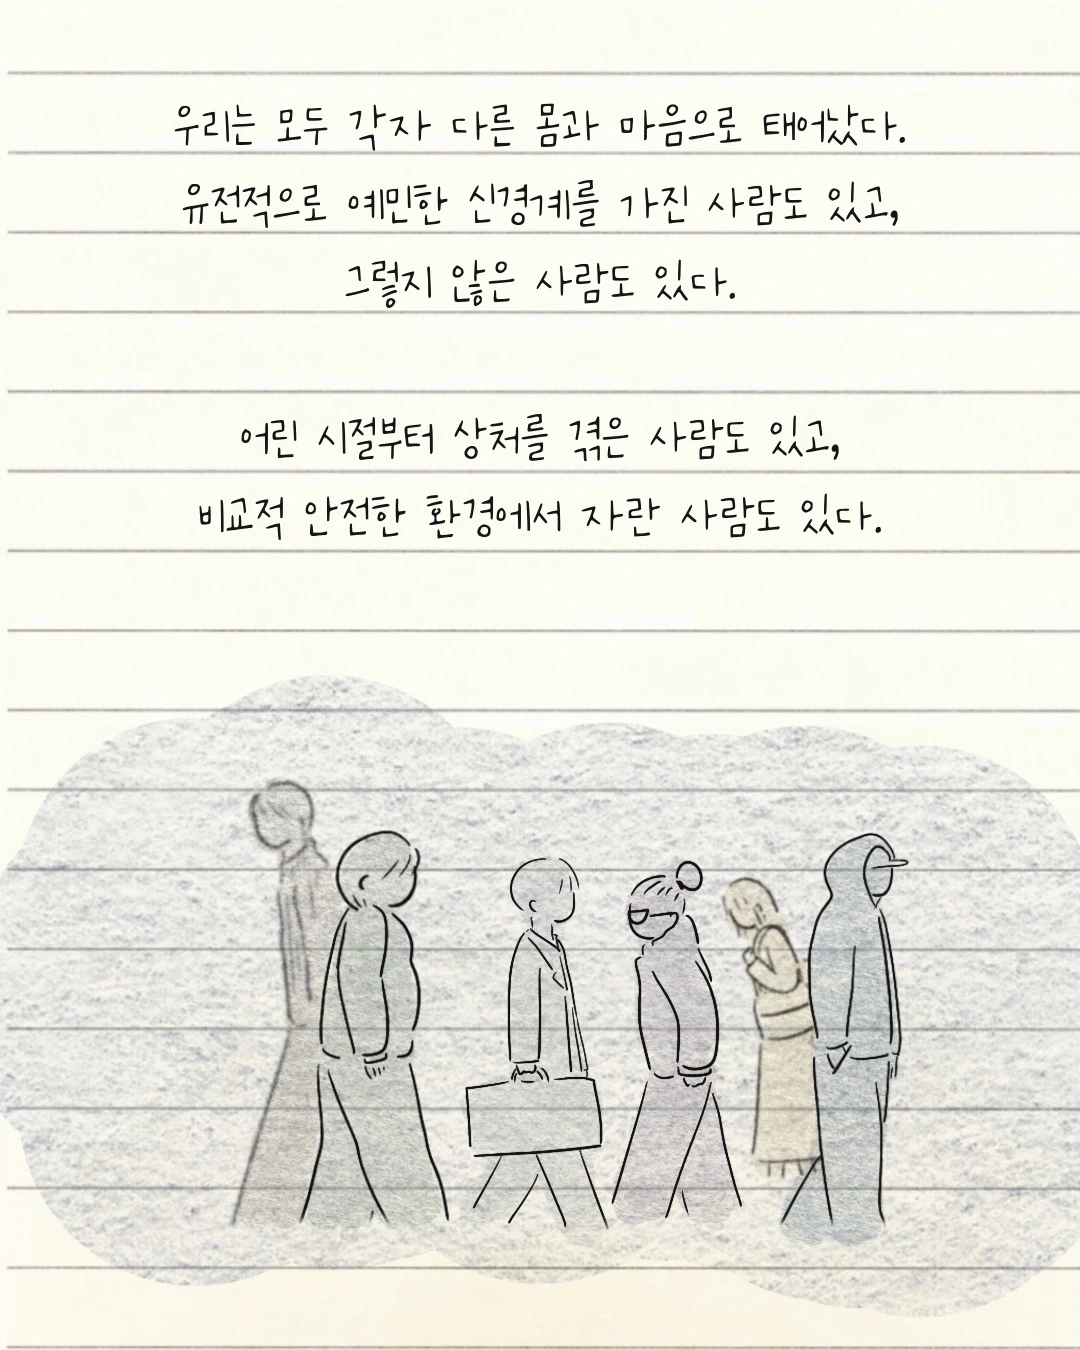 우리는 모두 각자 다른 몸과 마음으로 태어났다.
유전적으로 예민한 신경계를 가진 사람도 있고,
그렇지 않은 사람도 있다.
어린 시절부터 상처를 겪은 사람도 있고,
비교적 안전한 환경에서 자란 사람도 있다.